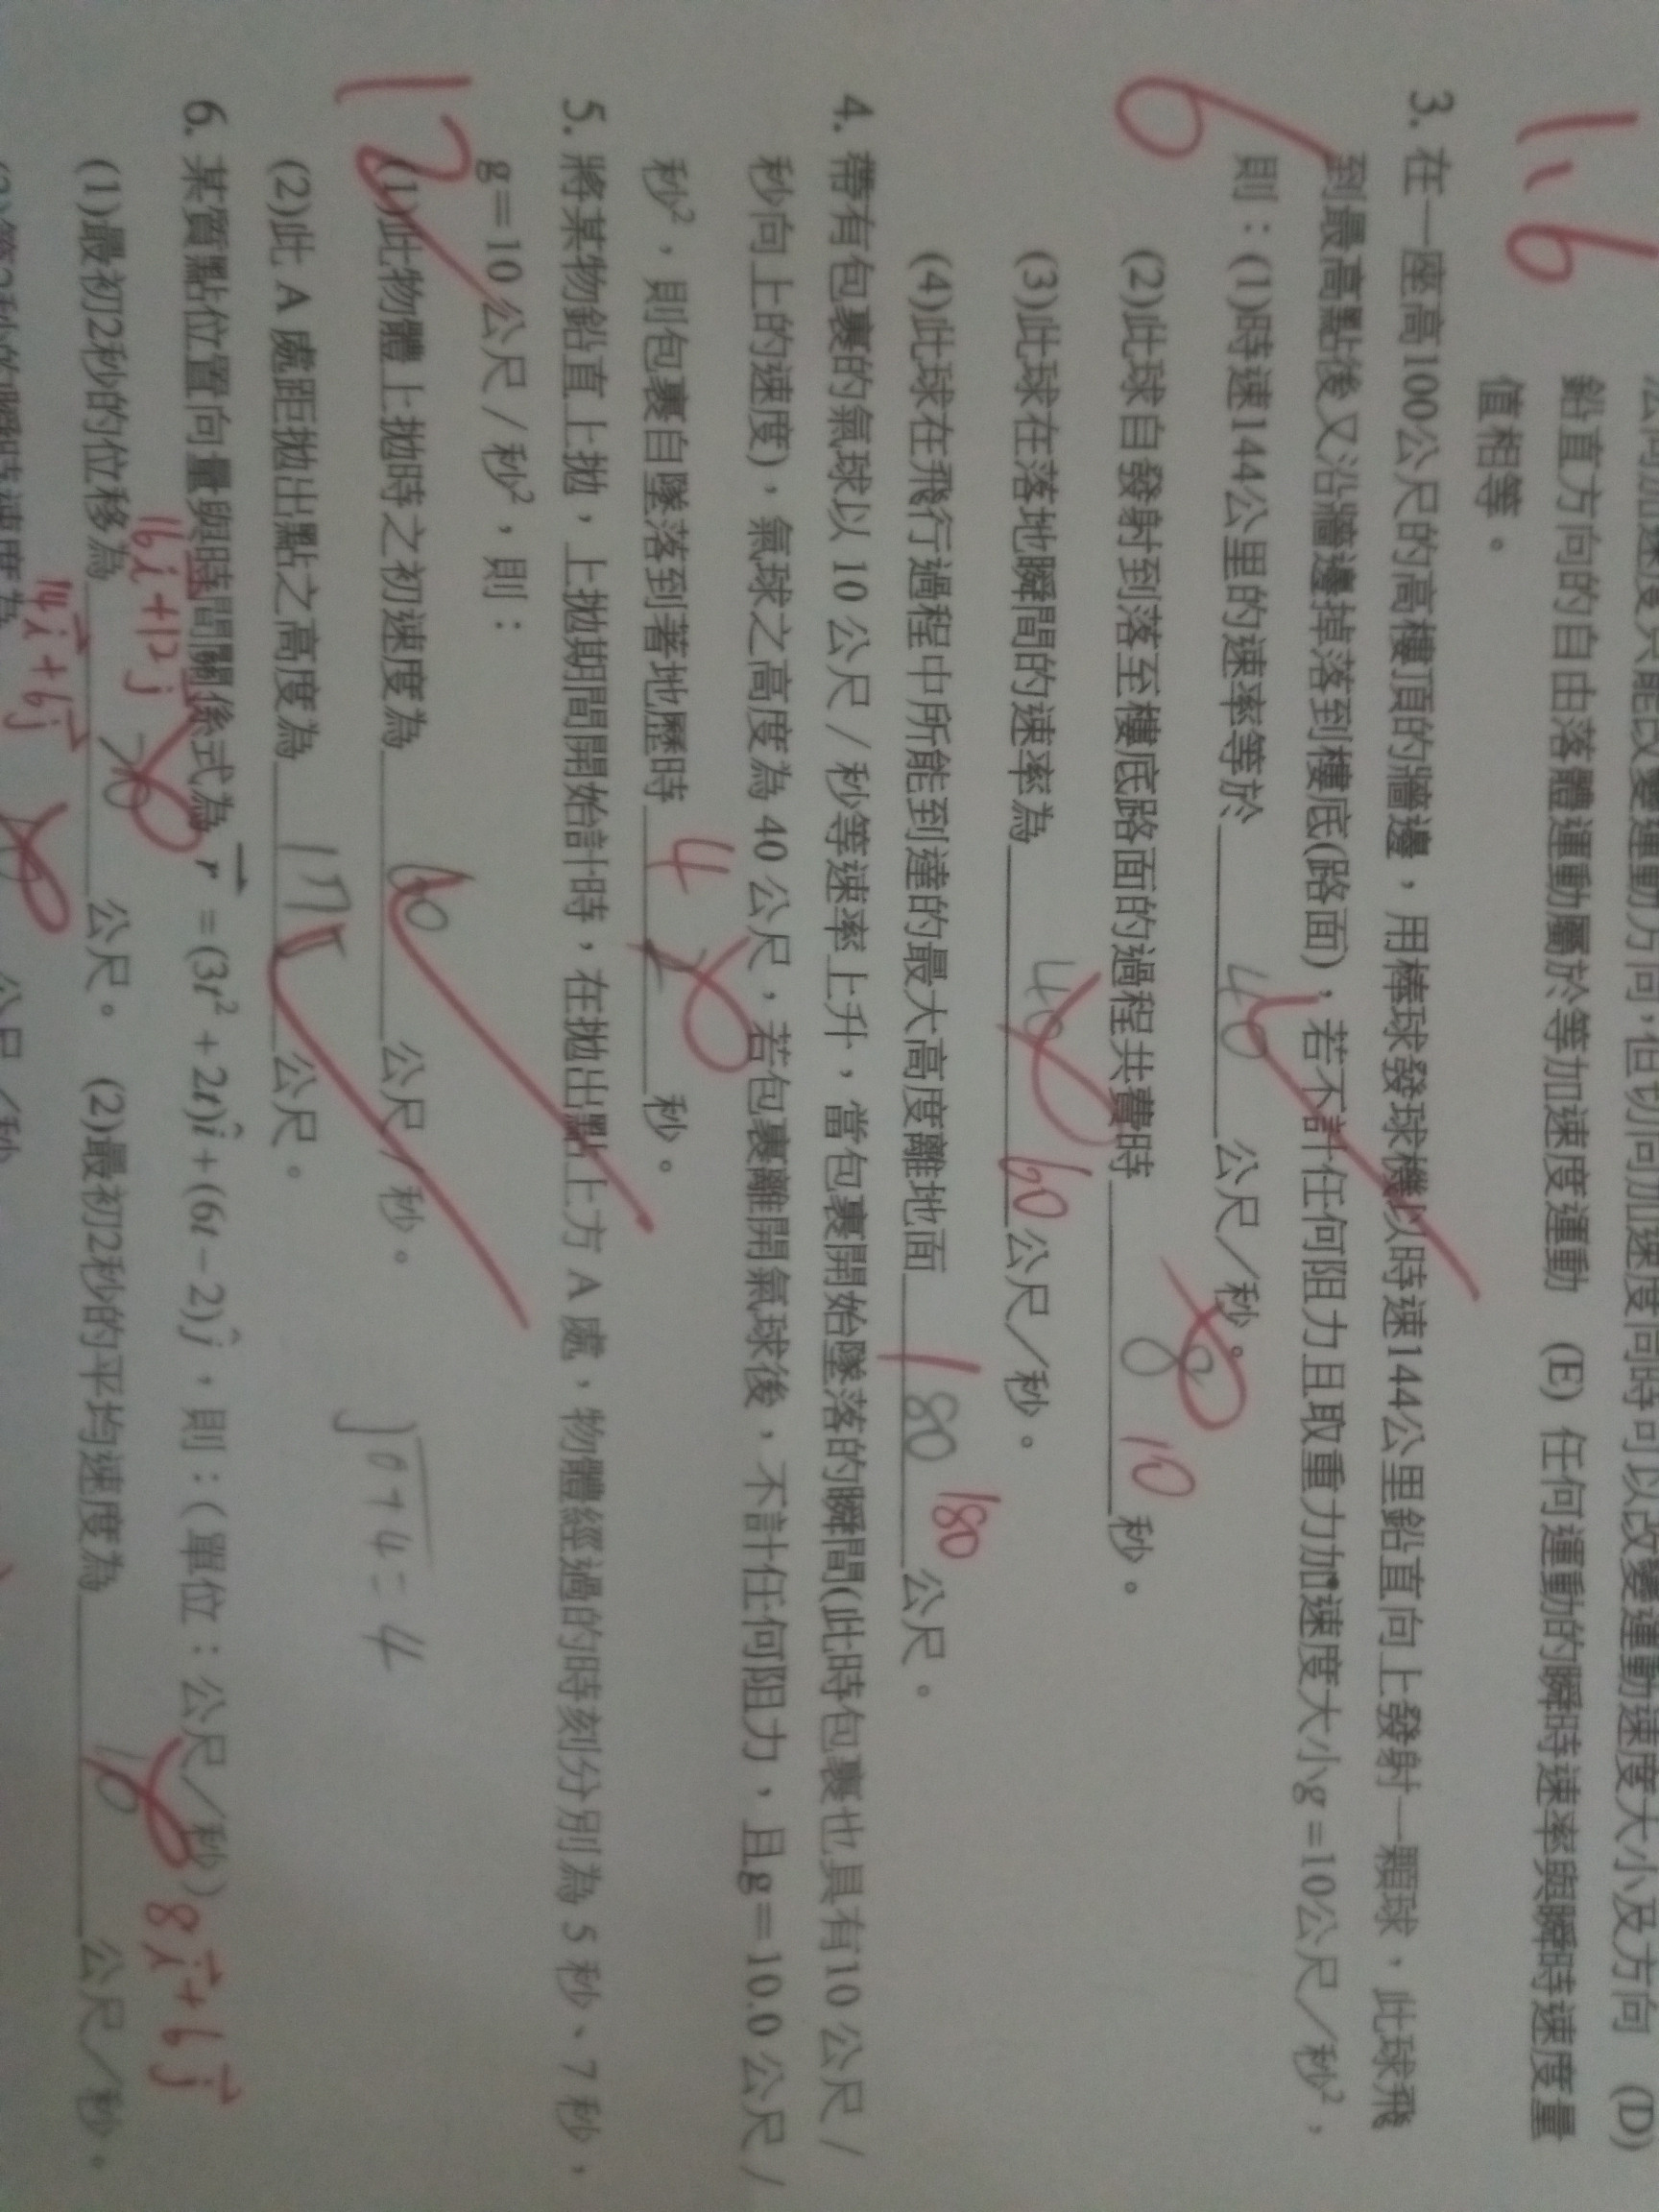 法向加速度只能改變運動方向，但切向加速度同時可以改變運動速度大小及方向 (D)
鉛直方向的自由落體運動屬於等加速度運動 (E) 任何運動的瞬時速率與瞬時速度量
值相等。
1.6
3. 在一座高100公尺的高樓頂的牆邊，用棒球發球機以時速144公里鉛直向上發射一顆球，此球飛
到最高點後又沿牆邊掉落到樓底(路面)，若不計任何阻力且取重力加速度大小g=10公尺／秒²，
6
則：(1)時速144公里的速率等於 40 公尺／秒。
(2)此球自發射到落至樓底路面的過程共費時 8 10 秒。
(3)此球在落地瞬間的速率為 40 60 公尺／秒。
(4)此球在飛行過程中所能到達的最大高度離地面 180 180 公尺。
4. 帶有包裹的氣球以 10 公尺 / 秒等速率上升，當包裹開始墜落的瞬間(此時包裹也具有10 公尺 /
秒向上的速度)，氣球之高度為 40 公尺，若包裹離開氣球後，不計任何阻力，且g＝10.0 公尺 /
秒²，則包裹自墜落到著地歷時 4 2 秒。
5. 將某物鉛直上拋，上拋期間開始計時，在拋出點上方 A 處，物體經過的時刻分別為 5 秒、7 秒，
g＝10 公尺 / 秒²，則：
12
(1)此物體上拋時之初速度為 60 公尺 / 秒。
(2)此 A 處距拋出點之高度為 175 公尺。
6. 某質點位置向量與時間關係式為 r⃗ = (3t² + 2t)î + (6t − 2)ĵ，則：(單位：公尺／秒)
16i⃗+12j⃗
8i⃗+6j⃗
(1)最初2秒的位移為 20 公尺。 (2)最初2秒的平均速度為 10 公尺／秒。
14i⃗+6j⃗